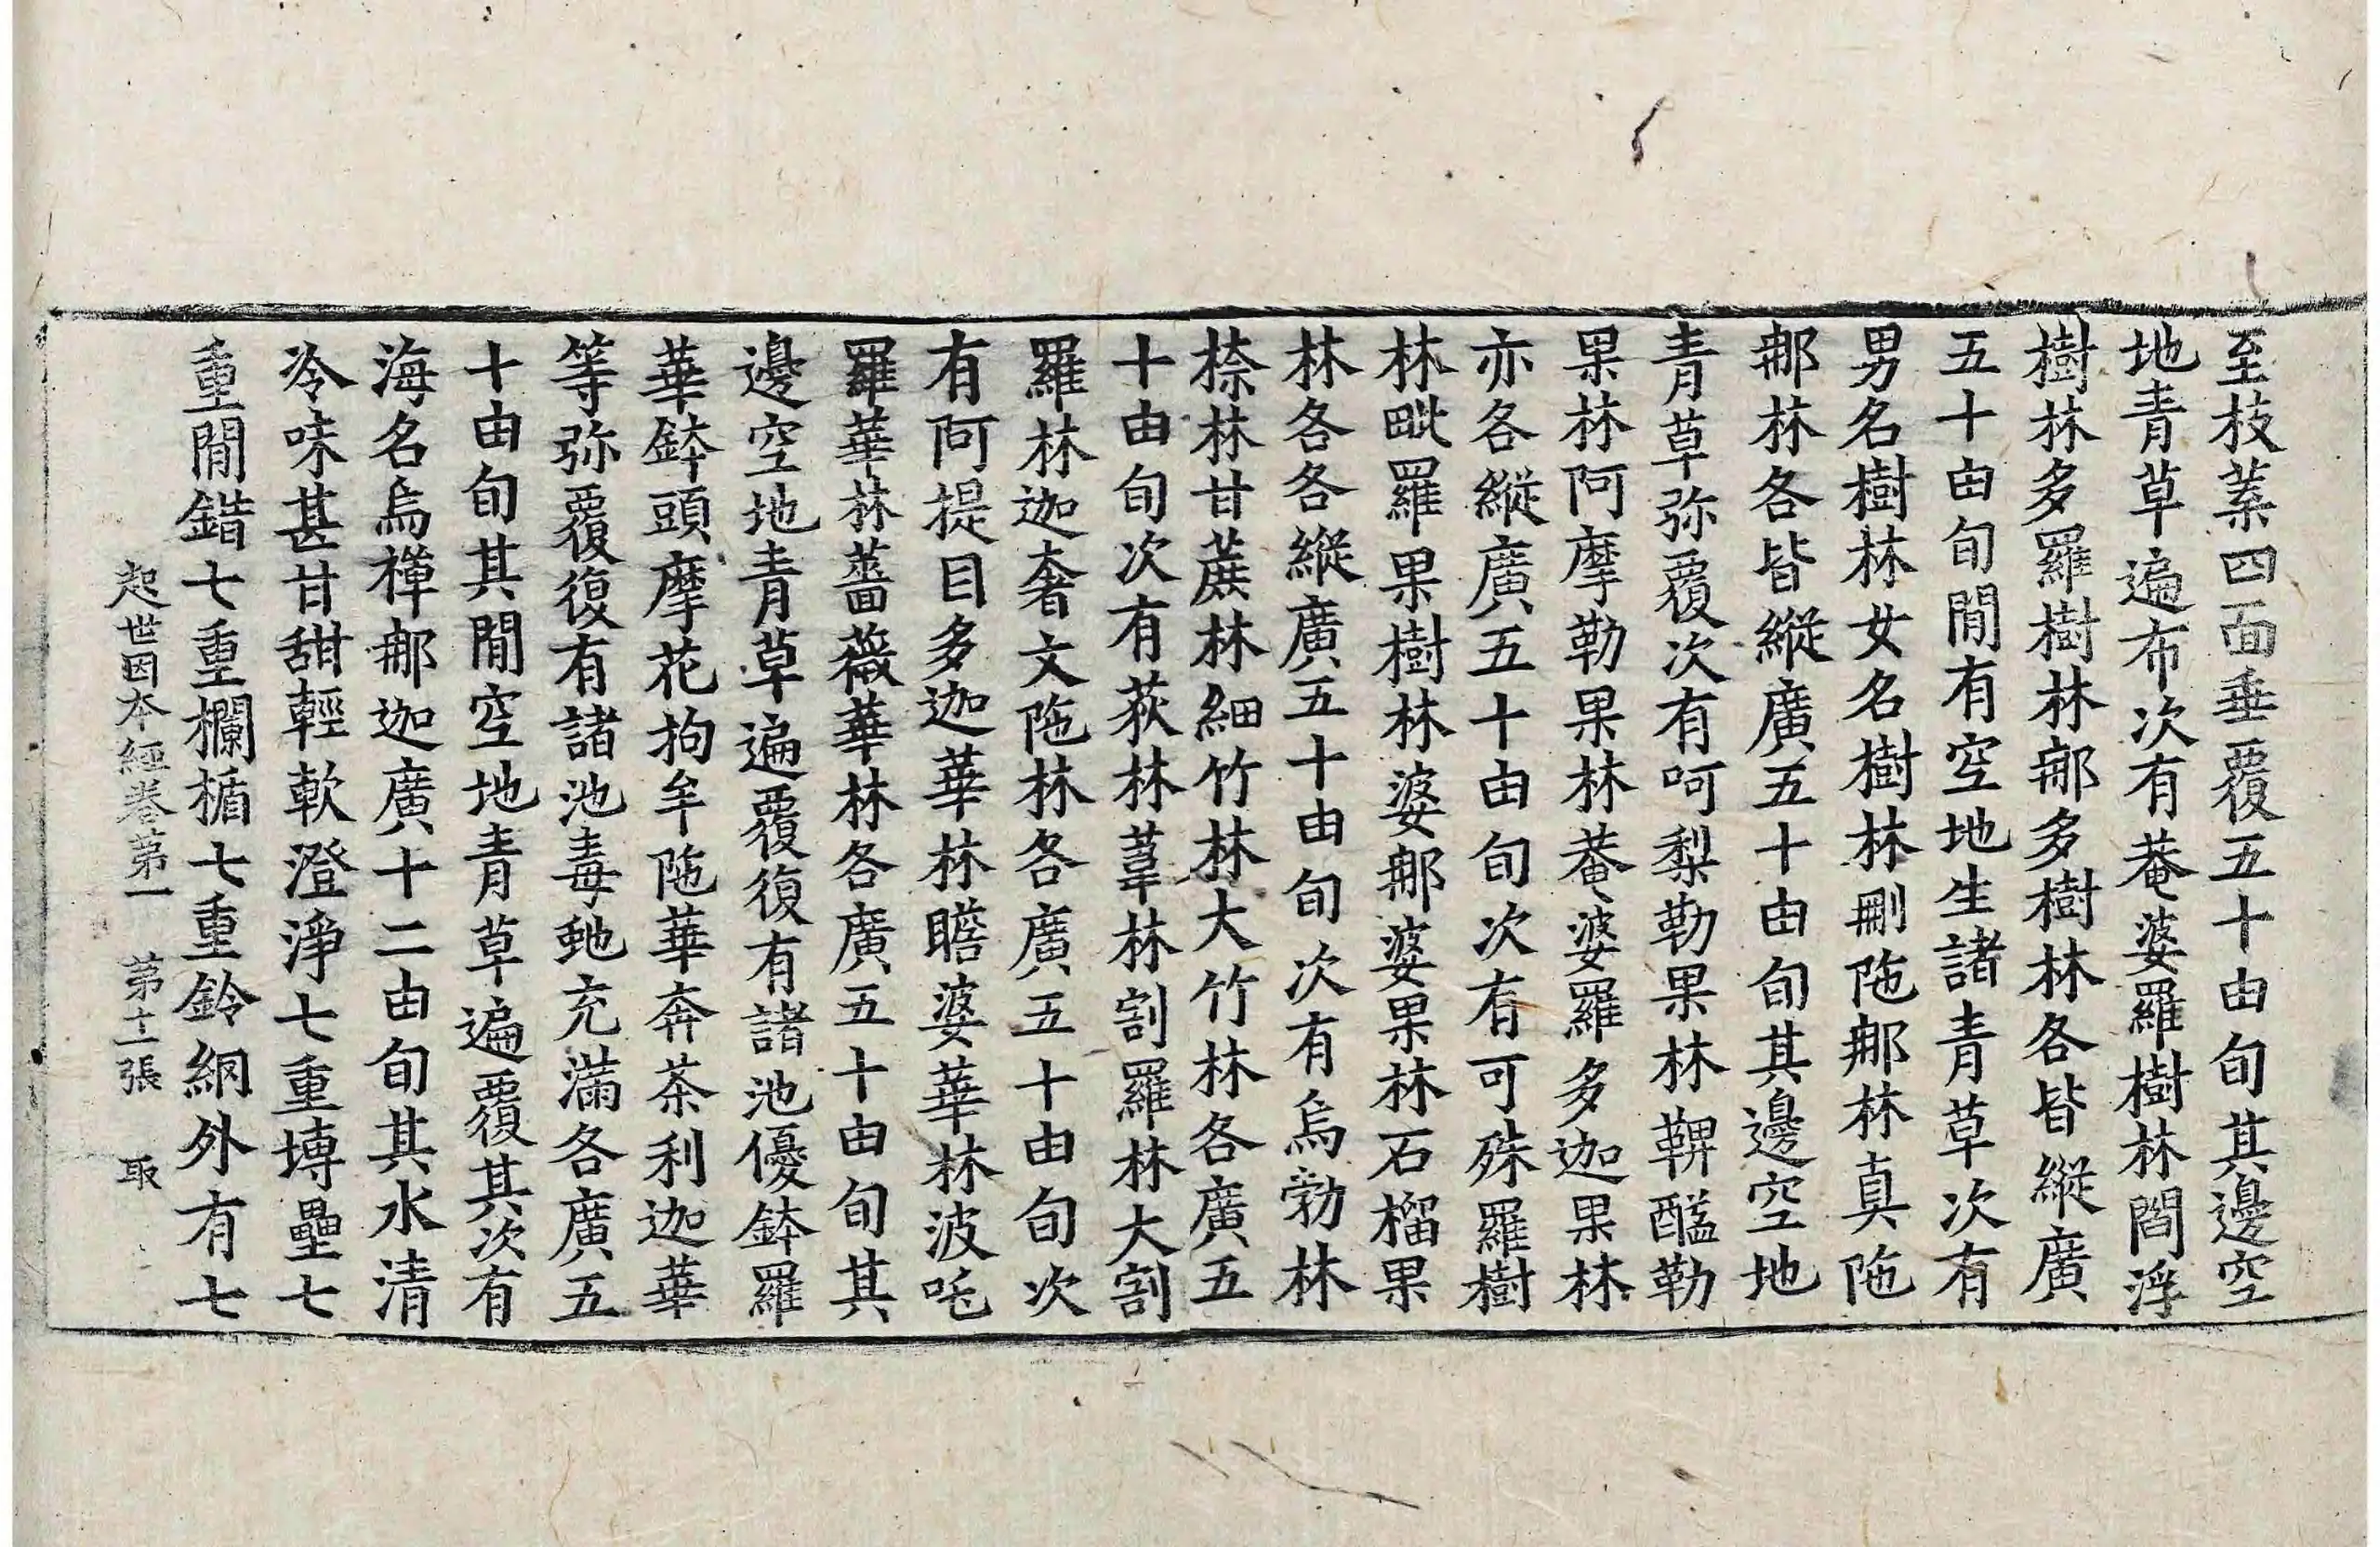 至枝葉四面垂覆五十由旬其邊空
地青草遍布次有菴婆羅樹林閻浮
樹林多羅樹林那多樹林各皆縱廣
五十由旬閒有空地生諸青草次有
男名樹林女名樹林刪陁那林真陁
那林各皆縱廣五十由旬其邊空地
青草弥覆次有呵梨勒果林鞞醯勒
果林阿摩勒果林菴婆羅多迦果林
亦各縱廣五十由旬次有可殊羅樹
林毗羅果樹林婆那婆果林石榴果
林各各縱廣五十由旬次有烏勃林
㮈林甘蔗林細竹林大竹林各廣五
十由旬次有荻林葦林割羅林大割
羅林迦奢文陁林各廣五十由旬次
有阿提目多迦華林瞻婆華林波吒
羅華林薔薇華林各廣五十由旬其
邊空地青草遍覆復有諸池優鉢羅
華鉢頭摩花拘牟陁華奔茶利迦華
等弥覆復有諸池毒虵充滿各廣五
十由旬其閒空地青草遍覆其次有
海名烏禪那迦廣十二由旬其水清
冷味甚甘甜輕軟澄淨七重塼壘七
重閒錯七重欄楯七重鈴網外有七
起世因本經卷第一 第十二張 取